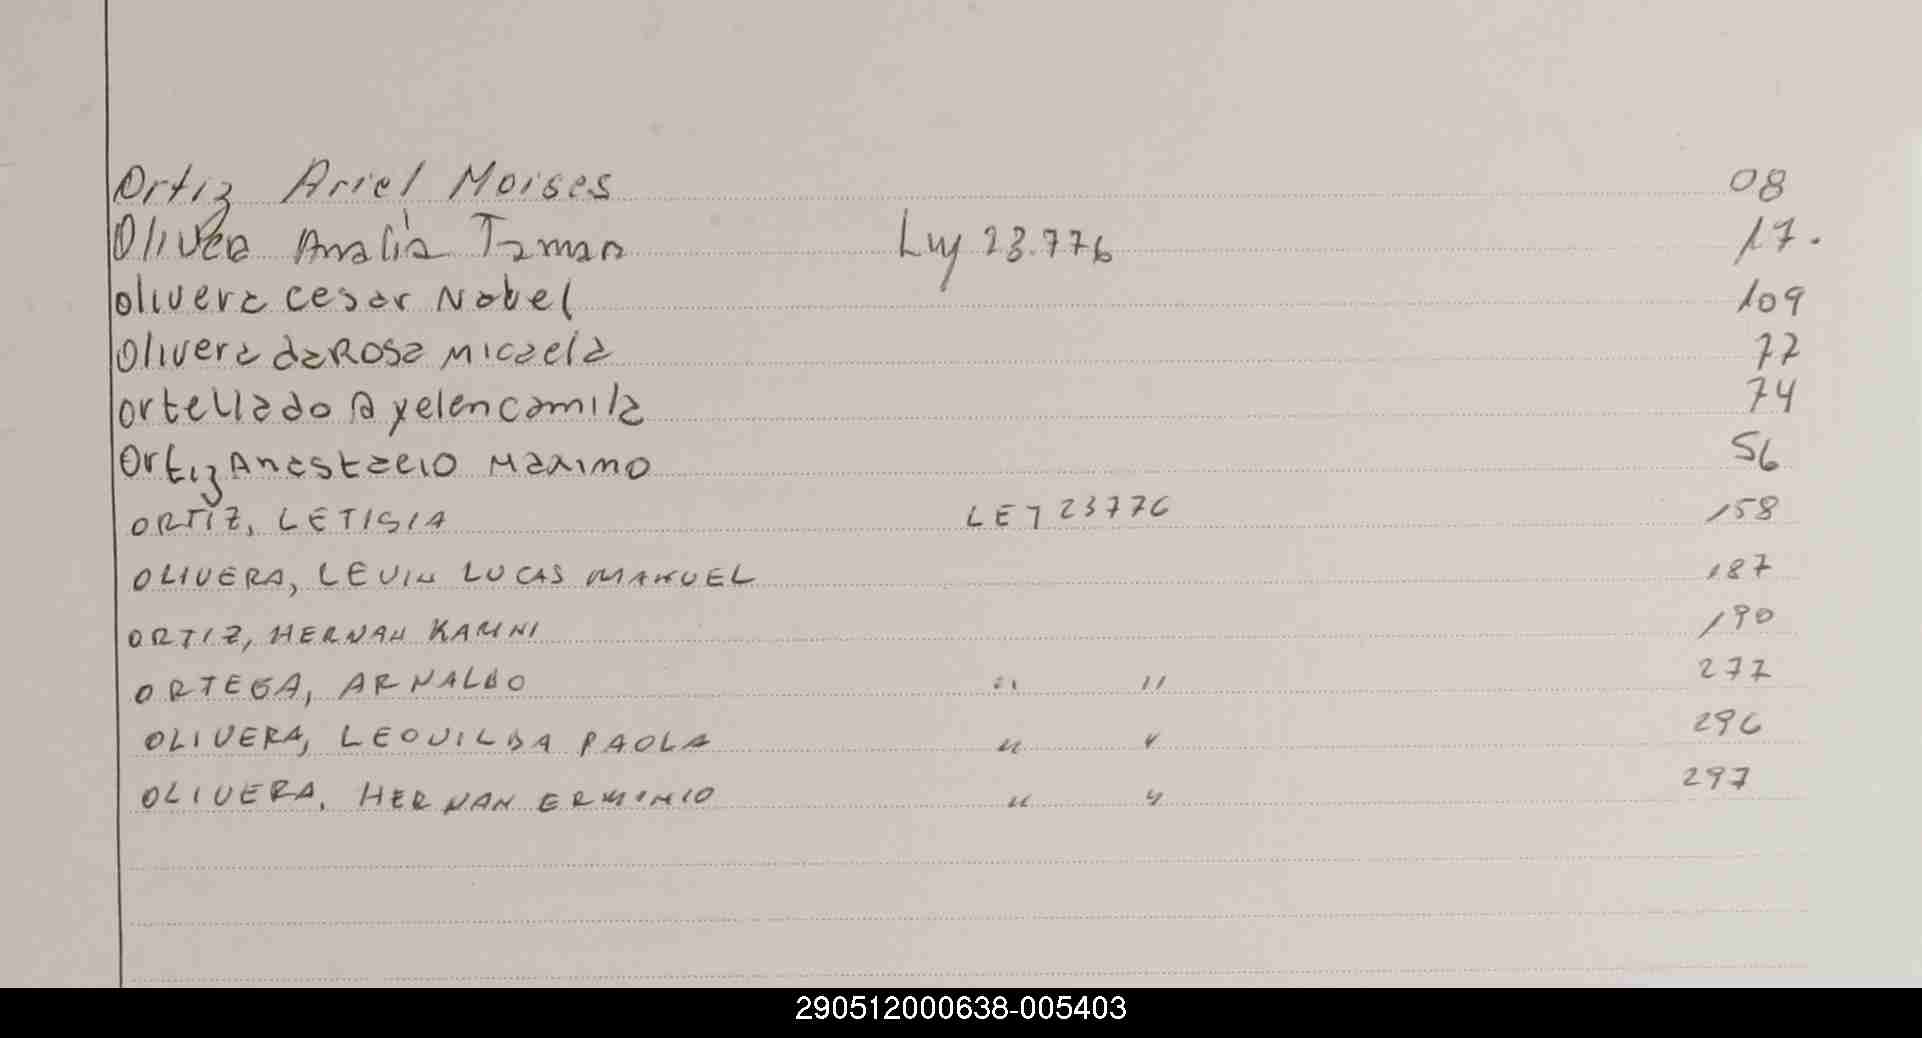 Ortiz Ariel Moises 08
Olivera Analía Taman Ley 23.776 17.
olivera cesar Nobel 109
Olivera da Rosa Micaela 77
ortellado Ayelen camila 74
Ortiz Anastacio Maximo 56
ORTIZ, LETISIA LEY 23776 158
OLIVERA, LEVIN LUCAS MANUEL 187
ORTIZ, HERNAN KARINI 190
ORTEGA, ARNALDO " " 277
OLIVERA, LEOVILDA PAOLA " " 296
OLIVERA, HERNAN ERMINIO " " 297
290512000638-005403